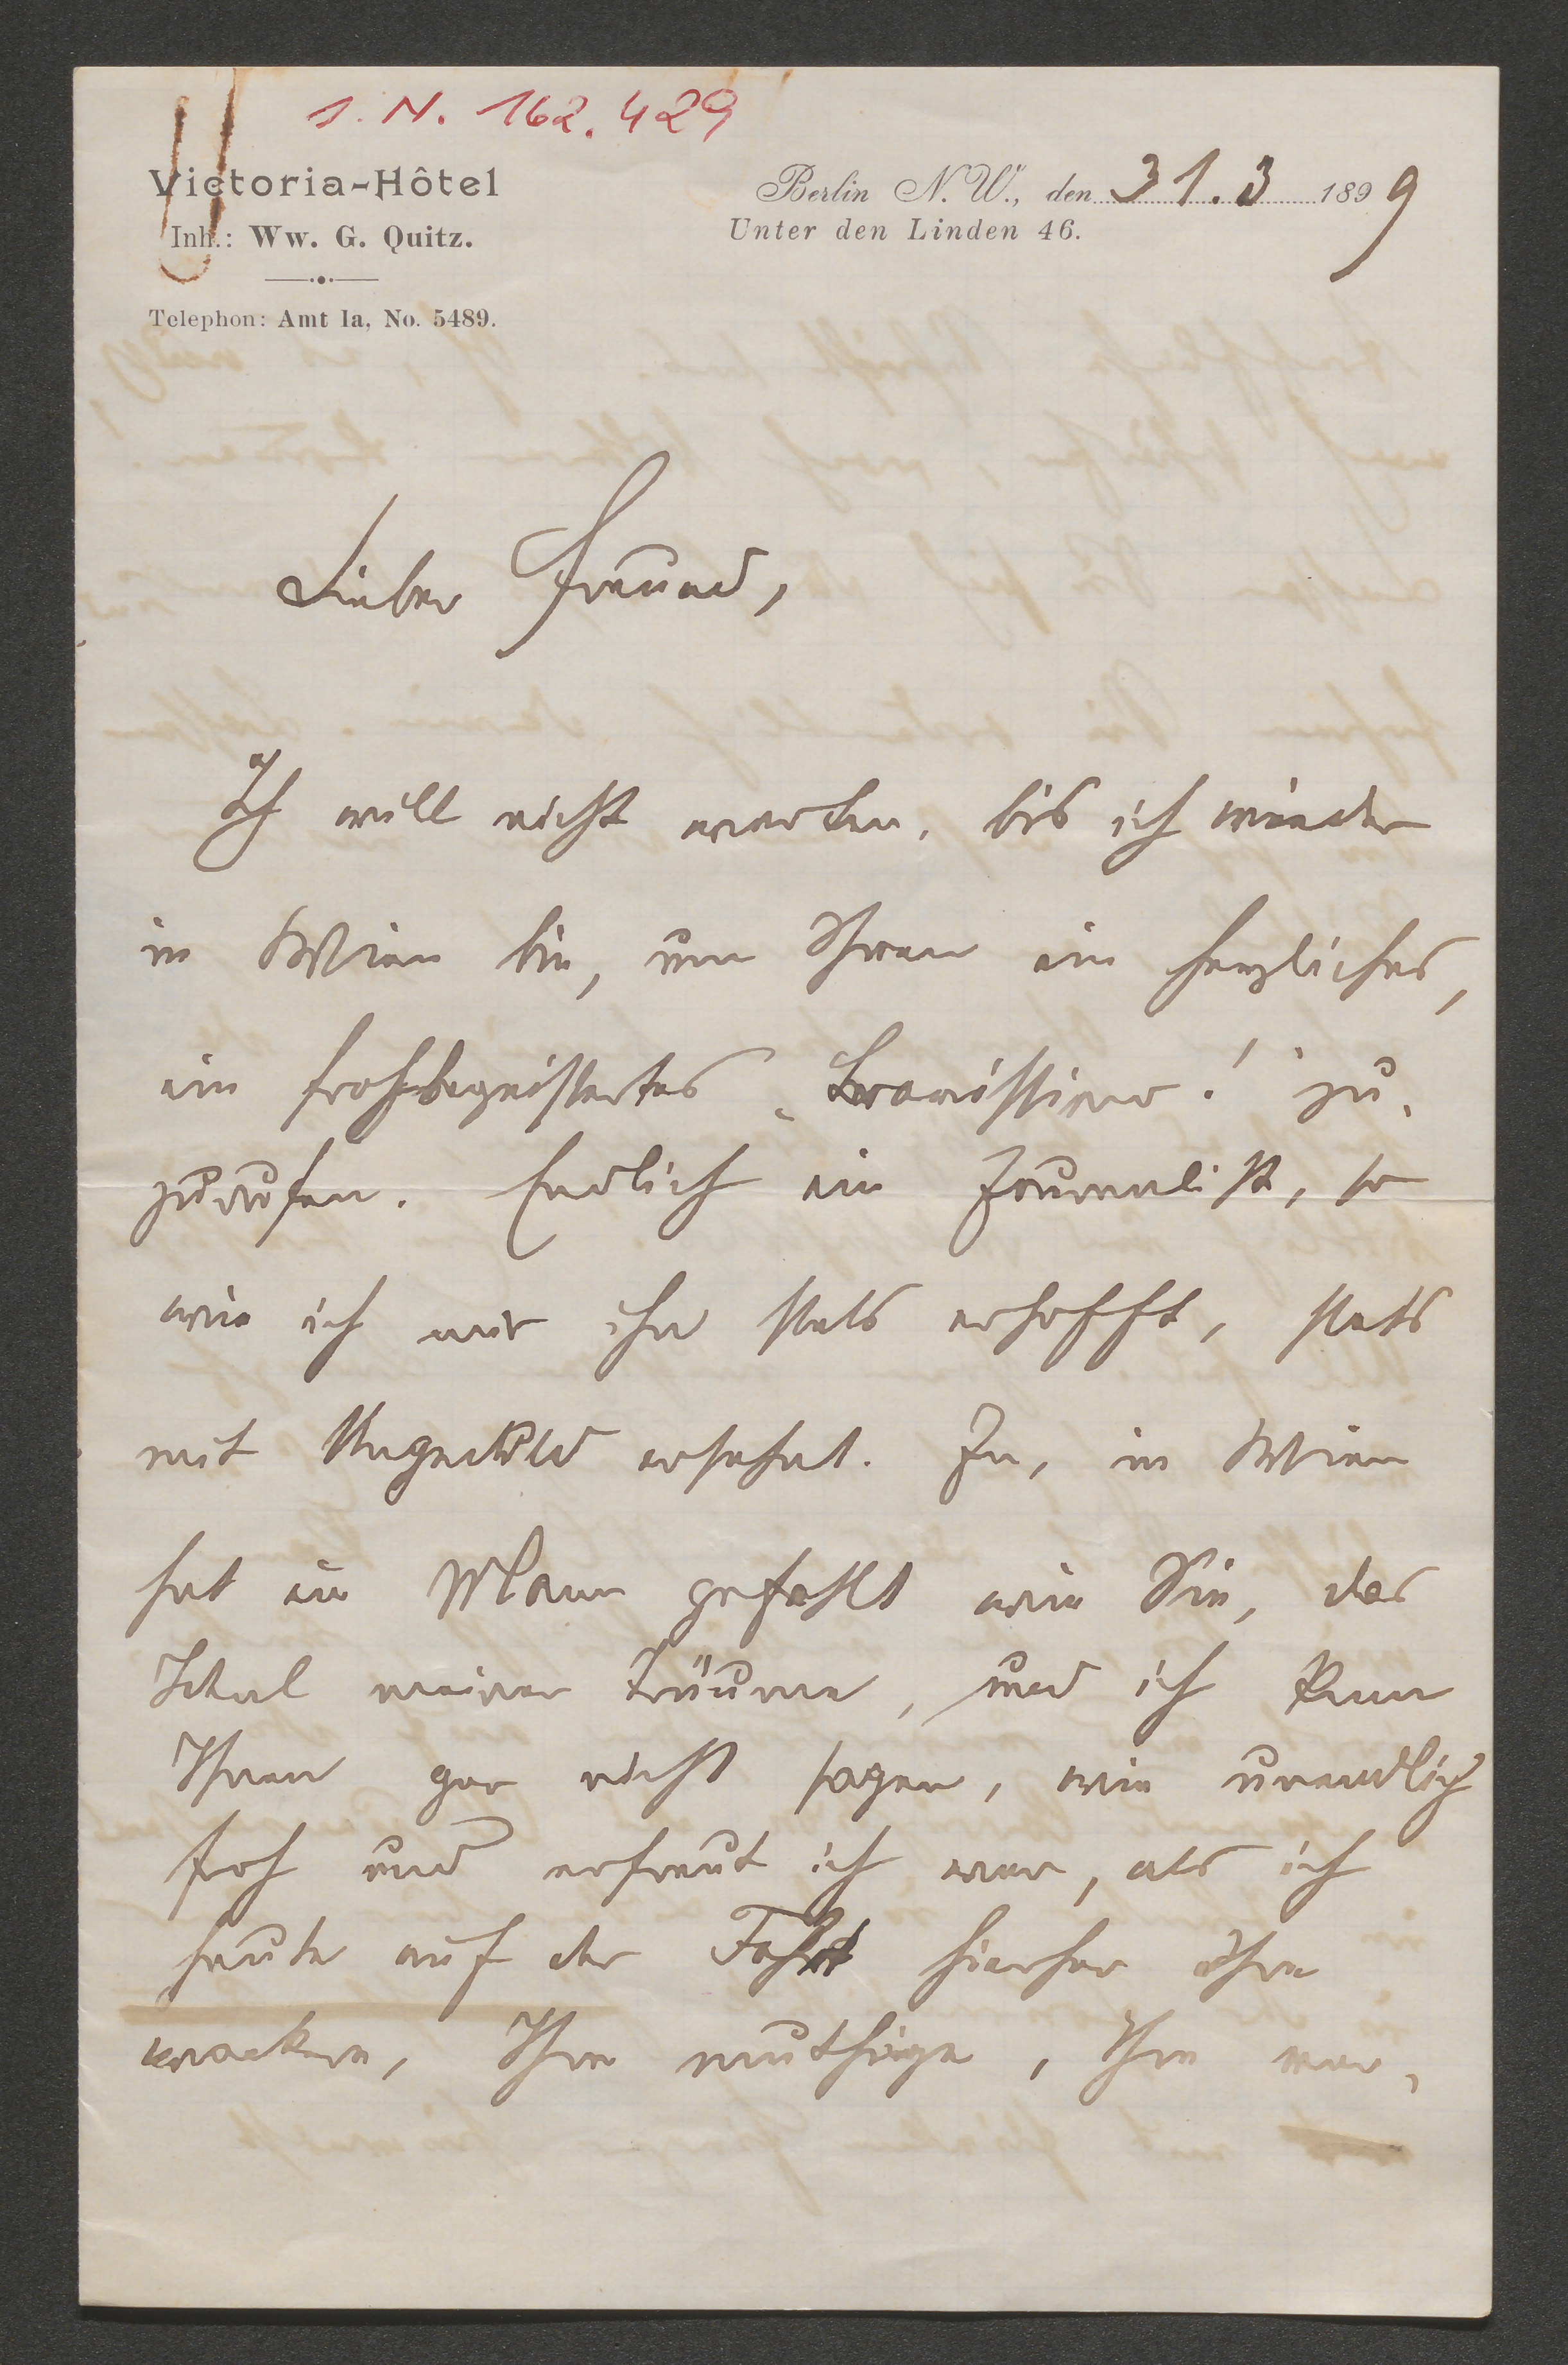 I. N. 162.429
Victoria-Hôtel
Inh.: Ww. G. Quitz.
Telephon: Amt Ia, No. 5489.
Berlin N. W., den 31.3 1899
Unter den Linden 46.
Lieber Freund,
Ich will nicht warten, bis ich wieder
in Wien bin, um Ihnen ein herzliches,
ein frohbegeistertes „Bravissimo!" zu-
zurufen. Endlich ein Journalist, so
wie ich mir ihn stets erhofft, stets
mit Ungeduld ersehnt. Ja, in Wien
hat ein Mann gefehlt wie Sie, das
Ideal meiner Träume, und ich kann
Ihnen gar nicht sagen, wie unendlich
froh und erfreut ich war, als ich
heute auf der Fahrt hierher Ihre
wackere, Ihre muthige, Ihre wer-